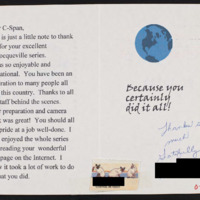 C-Span,
is just a little note to thank
for your excellent
cqueville series.
so enjoyable and
ational. You have been an
ration to many people all
this country. Thanks to all
taff behind the scenes.
preparation and camera
k was great! You should all
pride at a job well-done. I
enjoyed the whole series
read your wonderful
page on the Internet. I
it took a lot of work to do
at you did.
Because you
certainly
did it all!
Thanks
much